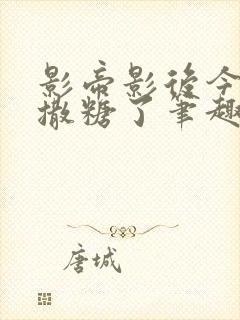 影帝影後今
撒糖了筆趣
唐城